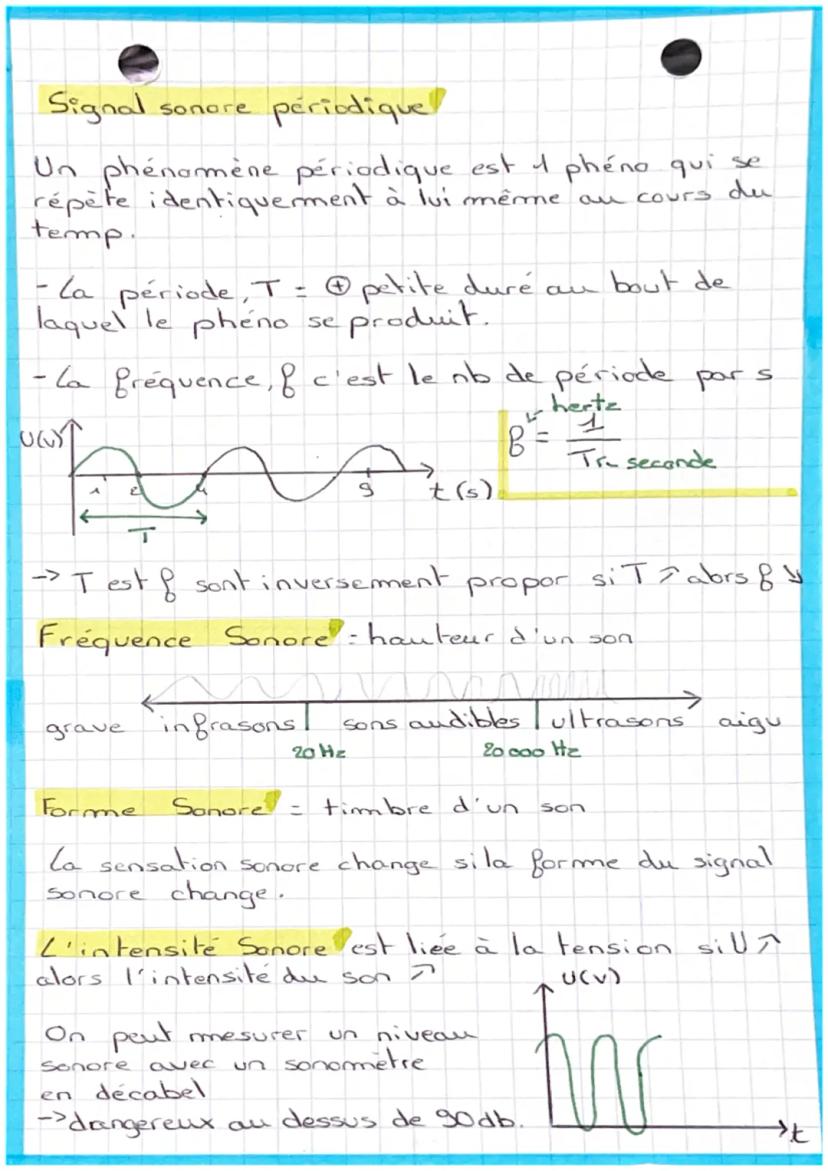 Signal sonore périodique
Un phénomène périodique est 1 phéno qui se
répète identiquement à lui même au cours du
temp.
- La période, T = ⊕ petite duré au bout de
laquel le phéno se produit.
- La fréquence, f c'est le nb de période par s
hertz
f = 1/T
seconde
U(v)
1 2 4 9 t (s)
T
-> T est f sont inversement propor si T ↗ alors f ↘
Fréquence Sonore = hauteur d'un son
grave infrasons sons audibles ultrasons aigu
20 Hz 20 000 Hz
Forme Sonore = timbre d'un son
La sensation sonore change si la forme du signal
sonore change.
L'intensité Sonore est liée à la tension si U ↗
alors l'intensité du son ↗
U(v)
On peut mesurer un niveau
sonore avec un sonomètre
en décabel
-> dangereux au dessus de 90 db.
t